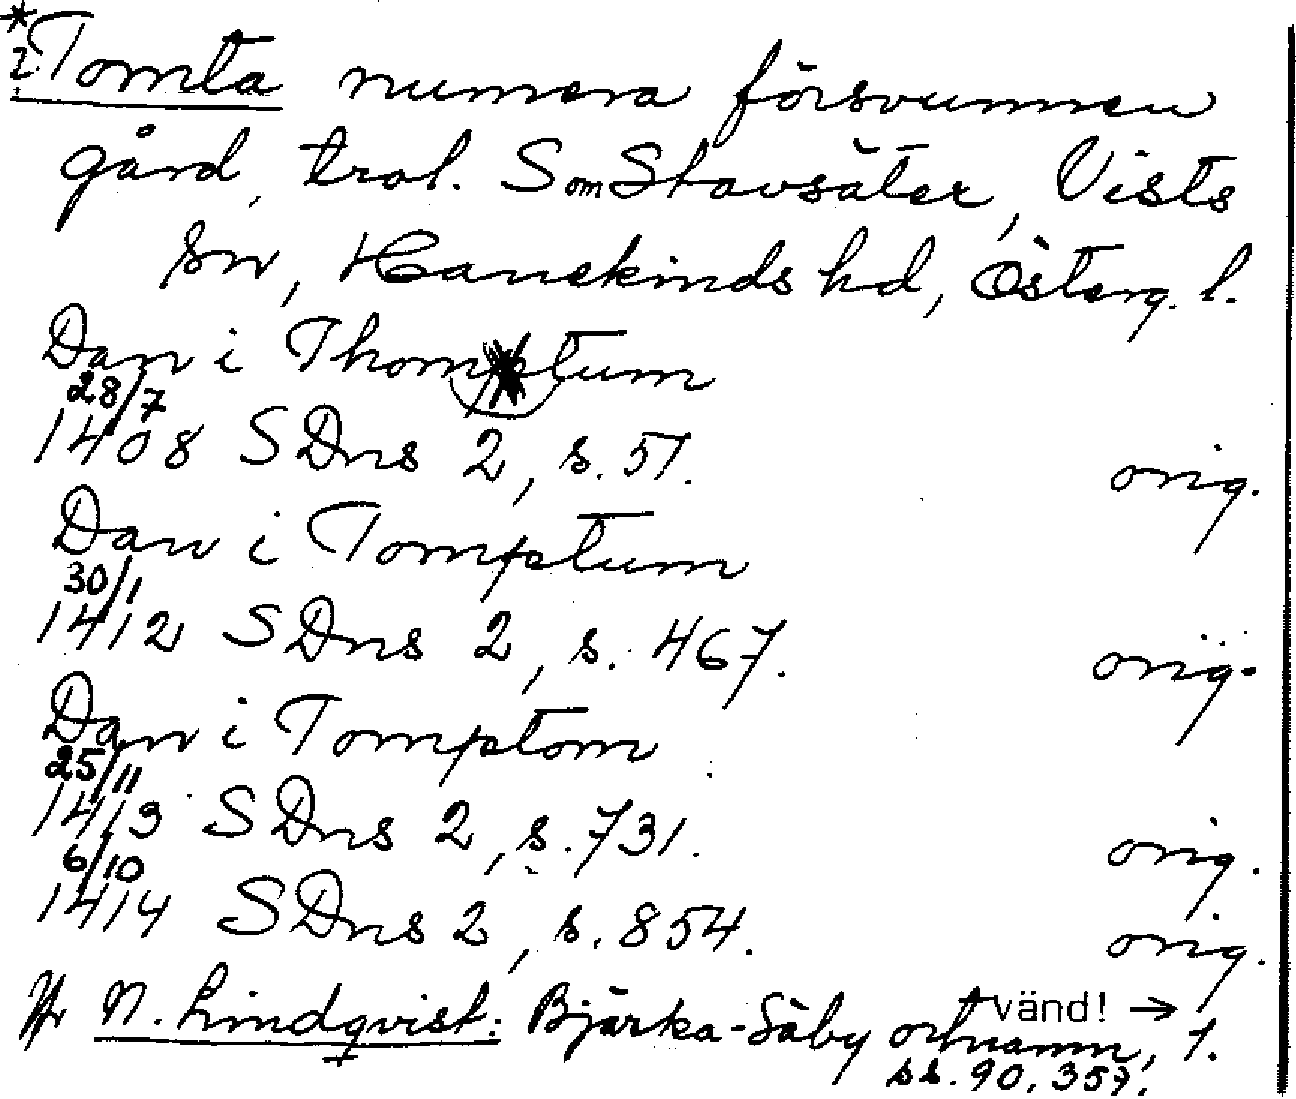 *
? Tomta numera försvunnen
gård, trol. S om Stavsäter, Vists
sn, Hanekinds hd, Österg. l.
Dan i Thomptum
28/7
1408 SDns 2, s. 51. orig.
Dan i Tomptum
30/1
1412 SDns 2, s. 467. orig.
Dan i Tomptom
25/11
1413 SDns 2, s. 731. orig.
6/10
1414 SDns 2, s. 854. orig.
Jfr N. Lindqvist: Bjärka-Säby ortnamn, 1.
vänd! →
ss. 90, 359.